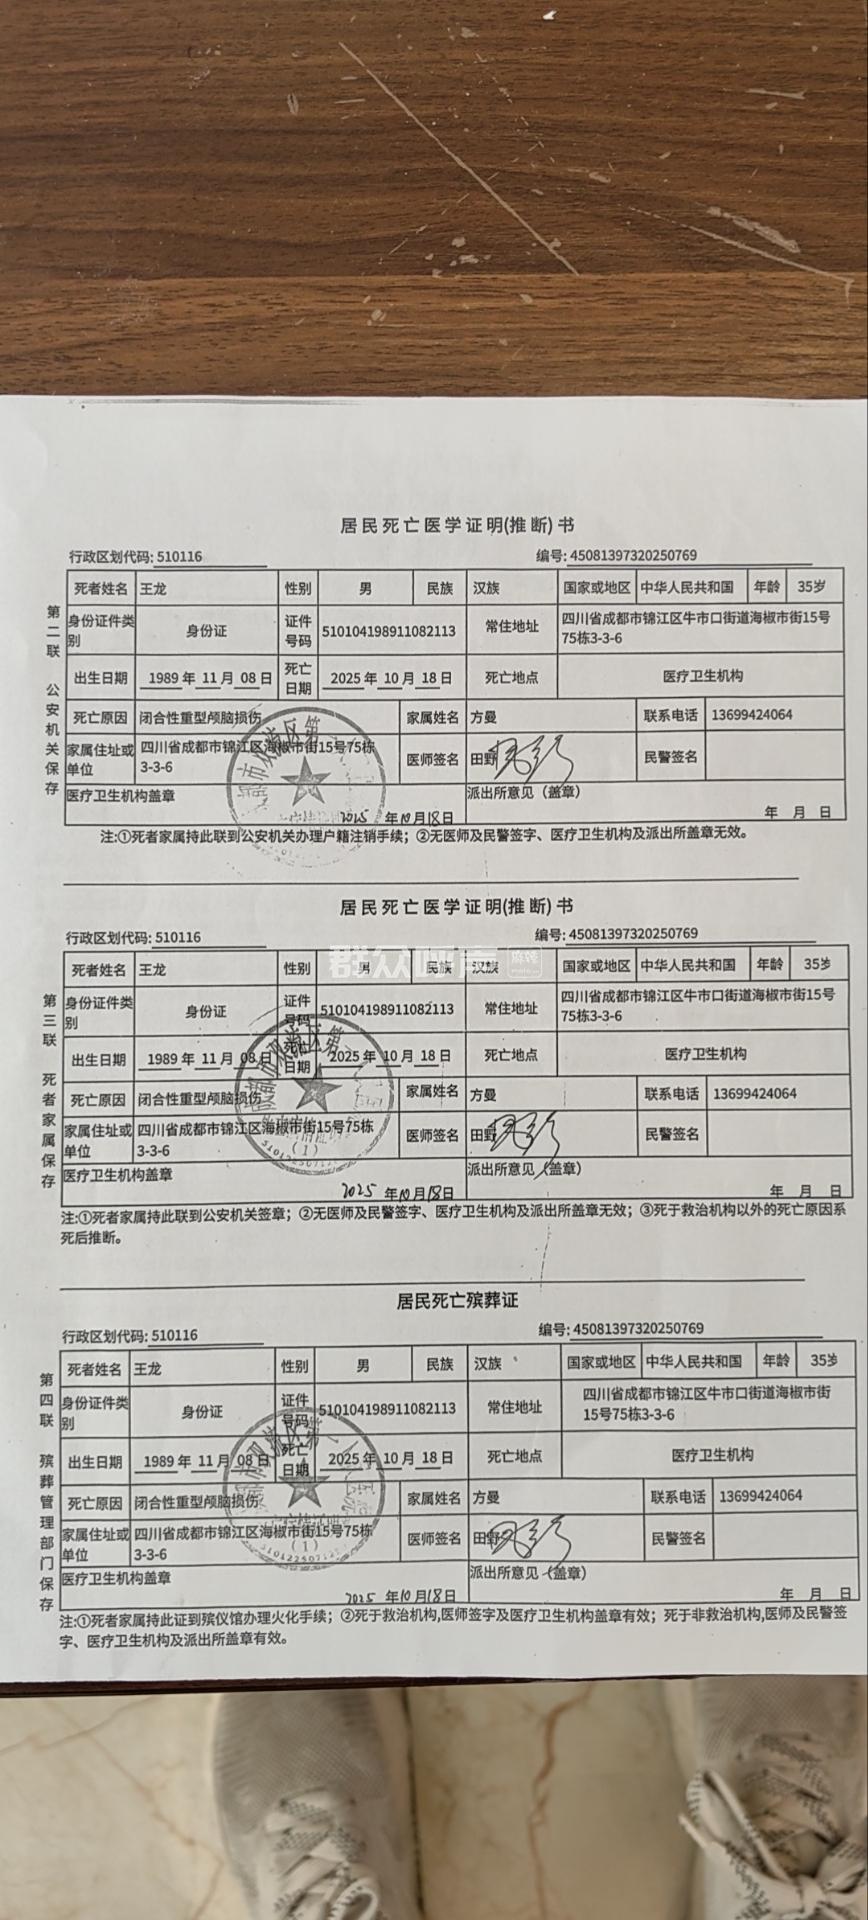 居民死亡医学证明(推断)书
行政区划代码: 510116 编号: 45081397320250769
第二联 公安机关保存
死者姓名 王龙 性别 男 民族 汉族 国家或地区 中华人民共和国 年龄 35岁
身份证件类别 身份证 证件号码 510104198911082113 常住地址 四川省成都市锦江区牛市口街道海椒市街15号75栋3-3-6
出生日期 1989 年 11 月 08 日 死亡日期 2025 年 10 月 18 日 死亡地点 医疗卫生机构
死亡原因 闭合性重型颅脑损伤 家属姓名 方曼 联系电话 13699424064
家属住址或单位 四川省成都市锦江区海椒市街15号75栋3-3-6 医师签名 田野 民警签名
医疗卫生机构盖章 2025 年 10 月 18 日 派出所意见（盖章） 年 月 日
注:①死者家属持此联到公安机关办理户籍注销手续；②无医师及民警签字、医疗卫生机构及派出所盖章无效。
居民死亡医学证明(推断)书
行政区划代码: 510116 编号: 45081397320250769
群众呼声 麻辣
第三联 死者家属保存
死者姓名 王龙 性别 男 民族 汉族 国家或地区 中华人民共和国 年龄 35岁
身份证件类别 身份证 证件号码 510104198911082113 常住地址 四川省成都市锦江区牛市口街道海椒市街15号75栋3-3-6
出生日期 1989 年 11 月 08 日 死亡日期 2025 年 10 月 18 日 死亡地点 医疗卫生机构
死亡原因 闭合性重型颅脑损伤 家属姓名 方曼 联系电话 13699424064
家属住址或单位 四川省成都市锦江区海椒市街15号75栋3-3-6 医师签名 田野 民警签名
医疗卫生机构盖章 2025 年 10 月 18 日 派出所意见（盖章） 年 月 日
注:①死者家属持此联到公安机关签章；②无医师及民警签字、医疗卫生机构及派出所盖章无效；③死于救治机构以外的死亡原因系
死后推断。
居民死亡殡葬证
行政区划代码: 510116 编号: 45081397320250769
第四联 殡葬管理部门保存
死者姓名 王龙 性别 男 民族 汉族 国家或地区 中华人民共和国 年龄 35岁
身份证件类别 身份证 证件号码 510104198911082113 常住地址 四川省成都市锦江区牛市口街道海椒市街15号75栋3-3-6
出生日期 1989 年 11 月 08 日 死亡日期 2025 年 10 月 18 日 死亡地点 医疗卫生机构
死亡原因 闭合性重型颅脑损伤 家属姓名 方曼 联系电话 13699424064
家属住址或单位 四川省成都市锦江区海椒市街15号75栋3-3-6 医师签名 田野 民警签名
医疗卫生机构盖章 2025 年 10 月 18 日 派出所意见（盖章） 年 月 日
注:①死者家属持此证到殡仪馆办理火化手续；②死于救治机构,医师签字及医疗卫生机构盖章有效；死于非救治机构,医师及民警签
字、医疗卫生机构及派出所盖章有效。